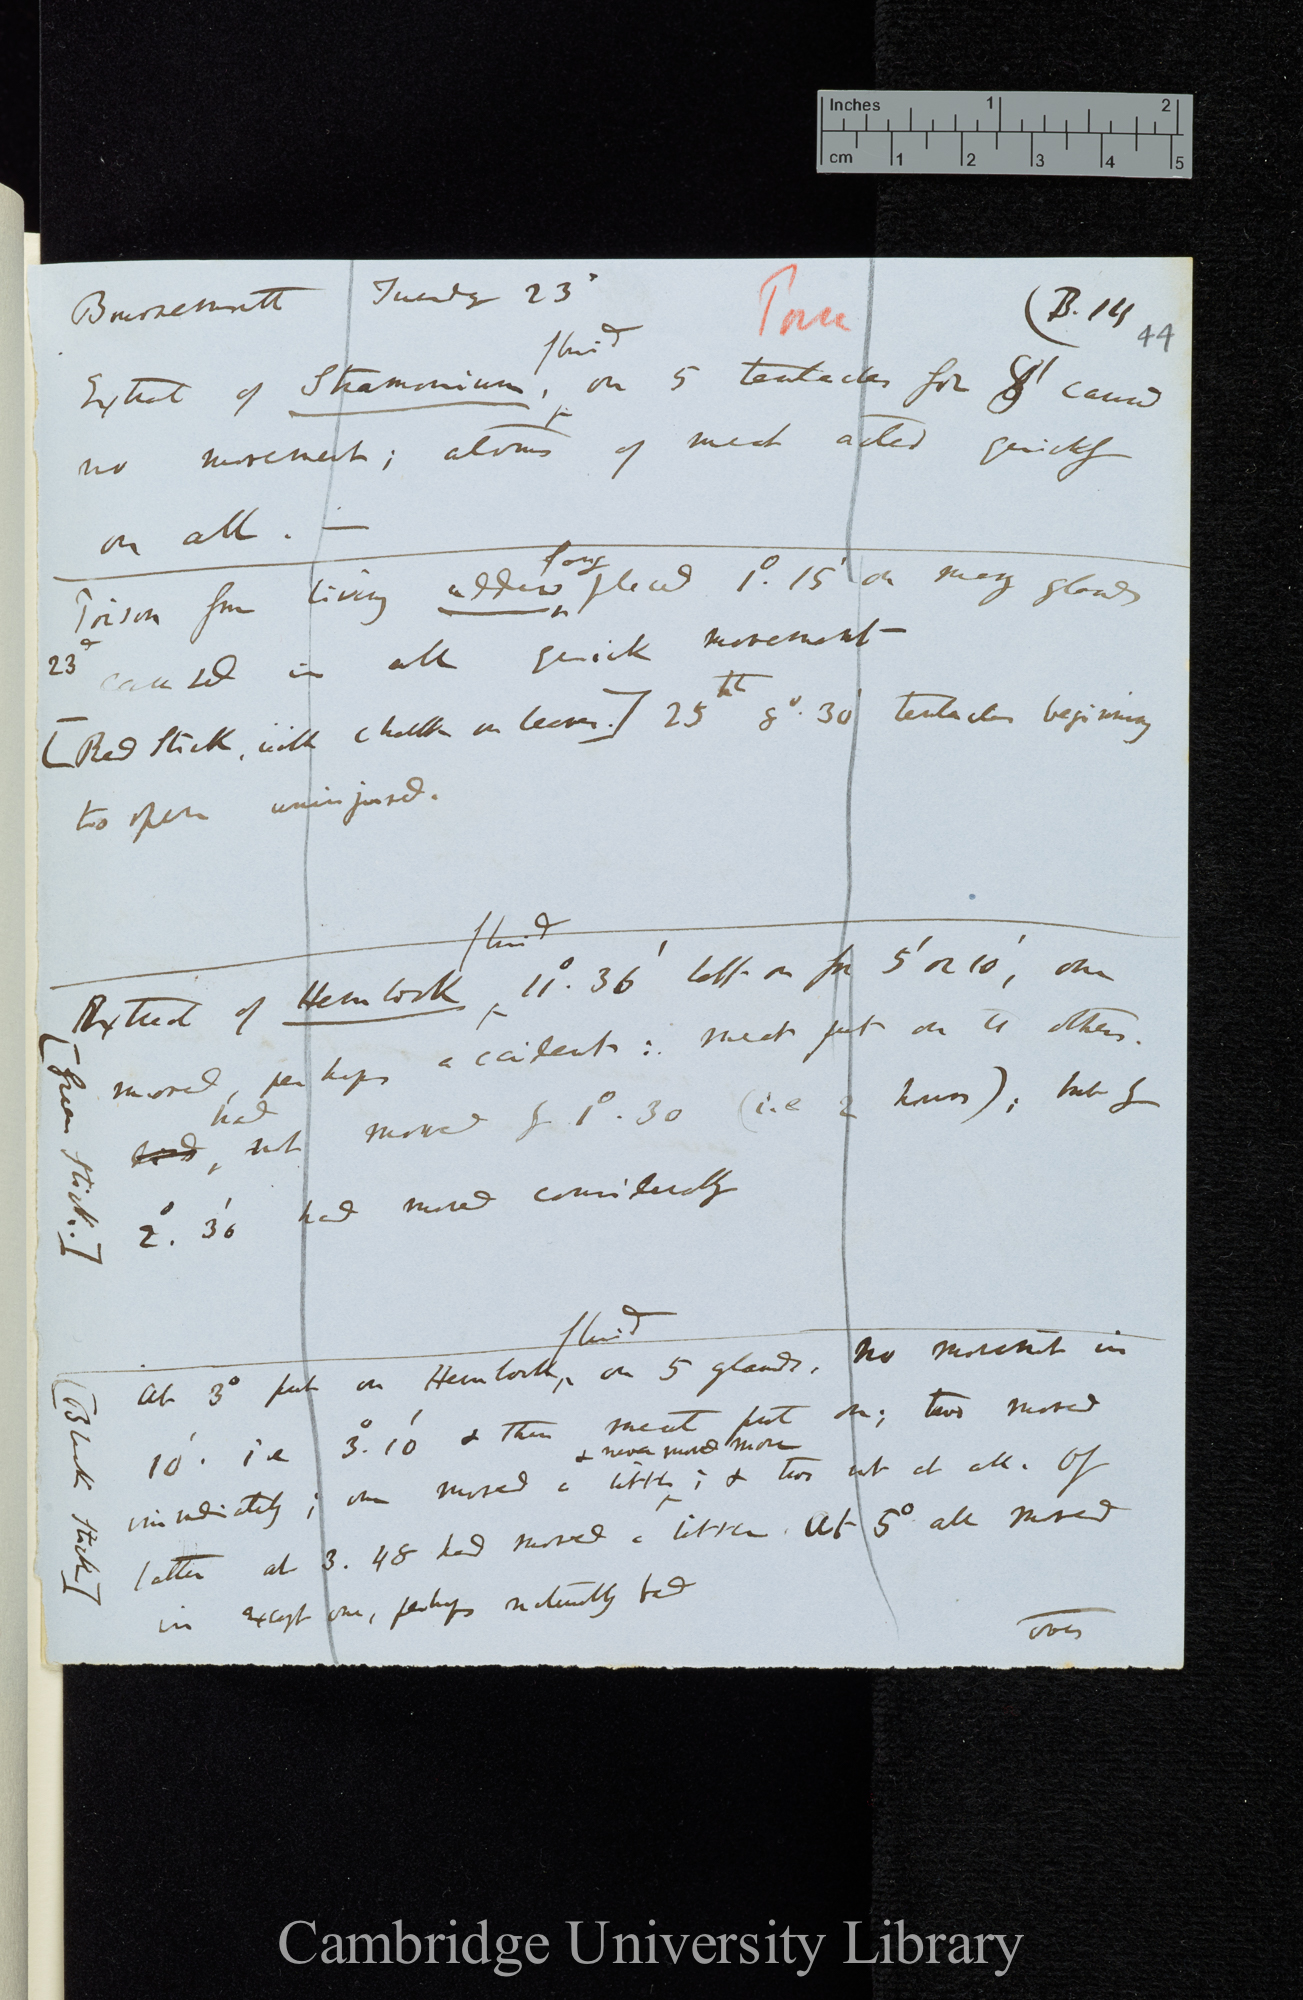 Inches 1 2
cm 1 2 3 4 5
Bournemouth Tuesday 23d
(B. 14
44
fluid
Extract of Stramonium, on 5 tentacles for 8' caused
no movement; atoms of meat acted quickly
on all. —
fang
Poison from living adders placed 1°. 15' on many glands
23d caused in all quick movement
[Red Stick, with chalk on leaves.] 25th 8°. 30' tentacles beginning
to open uninjured.
fluid
Extract of Hemlock 11°. 36' left on for 5' or 10', one
moved, perhaps accident: meat put on to others.
had
not moved by 1°. 30 (i.e 2 hours); but by
2°. 36' had moved considerably
[Green Stick.]
fluid
At 3° put on Hemlock, on 5 glands, no movement in
10'. i.e 3°. 10' & then meat put on; two moved
& never moved more
immediately; one moved a little; & two not at all. Of
latter at 3. 48 had moved a little. At 5° all moved
in except one, perhaps naturally bad
[Black Stick]
over
Cambridge University Library